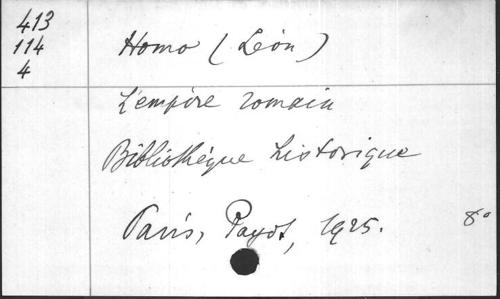 413
114
4
Homo (Léon)
L'empire romain
Bibliothèque historique
Paris, Payot, 1925.
8°